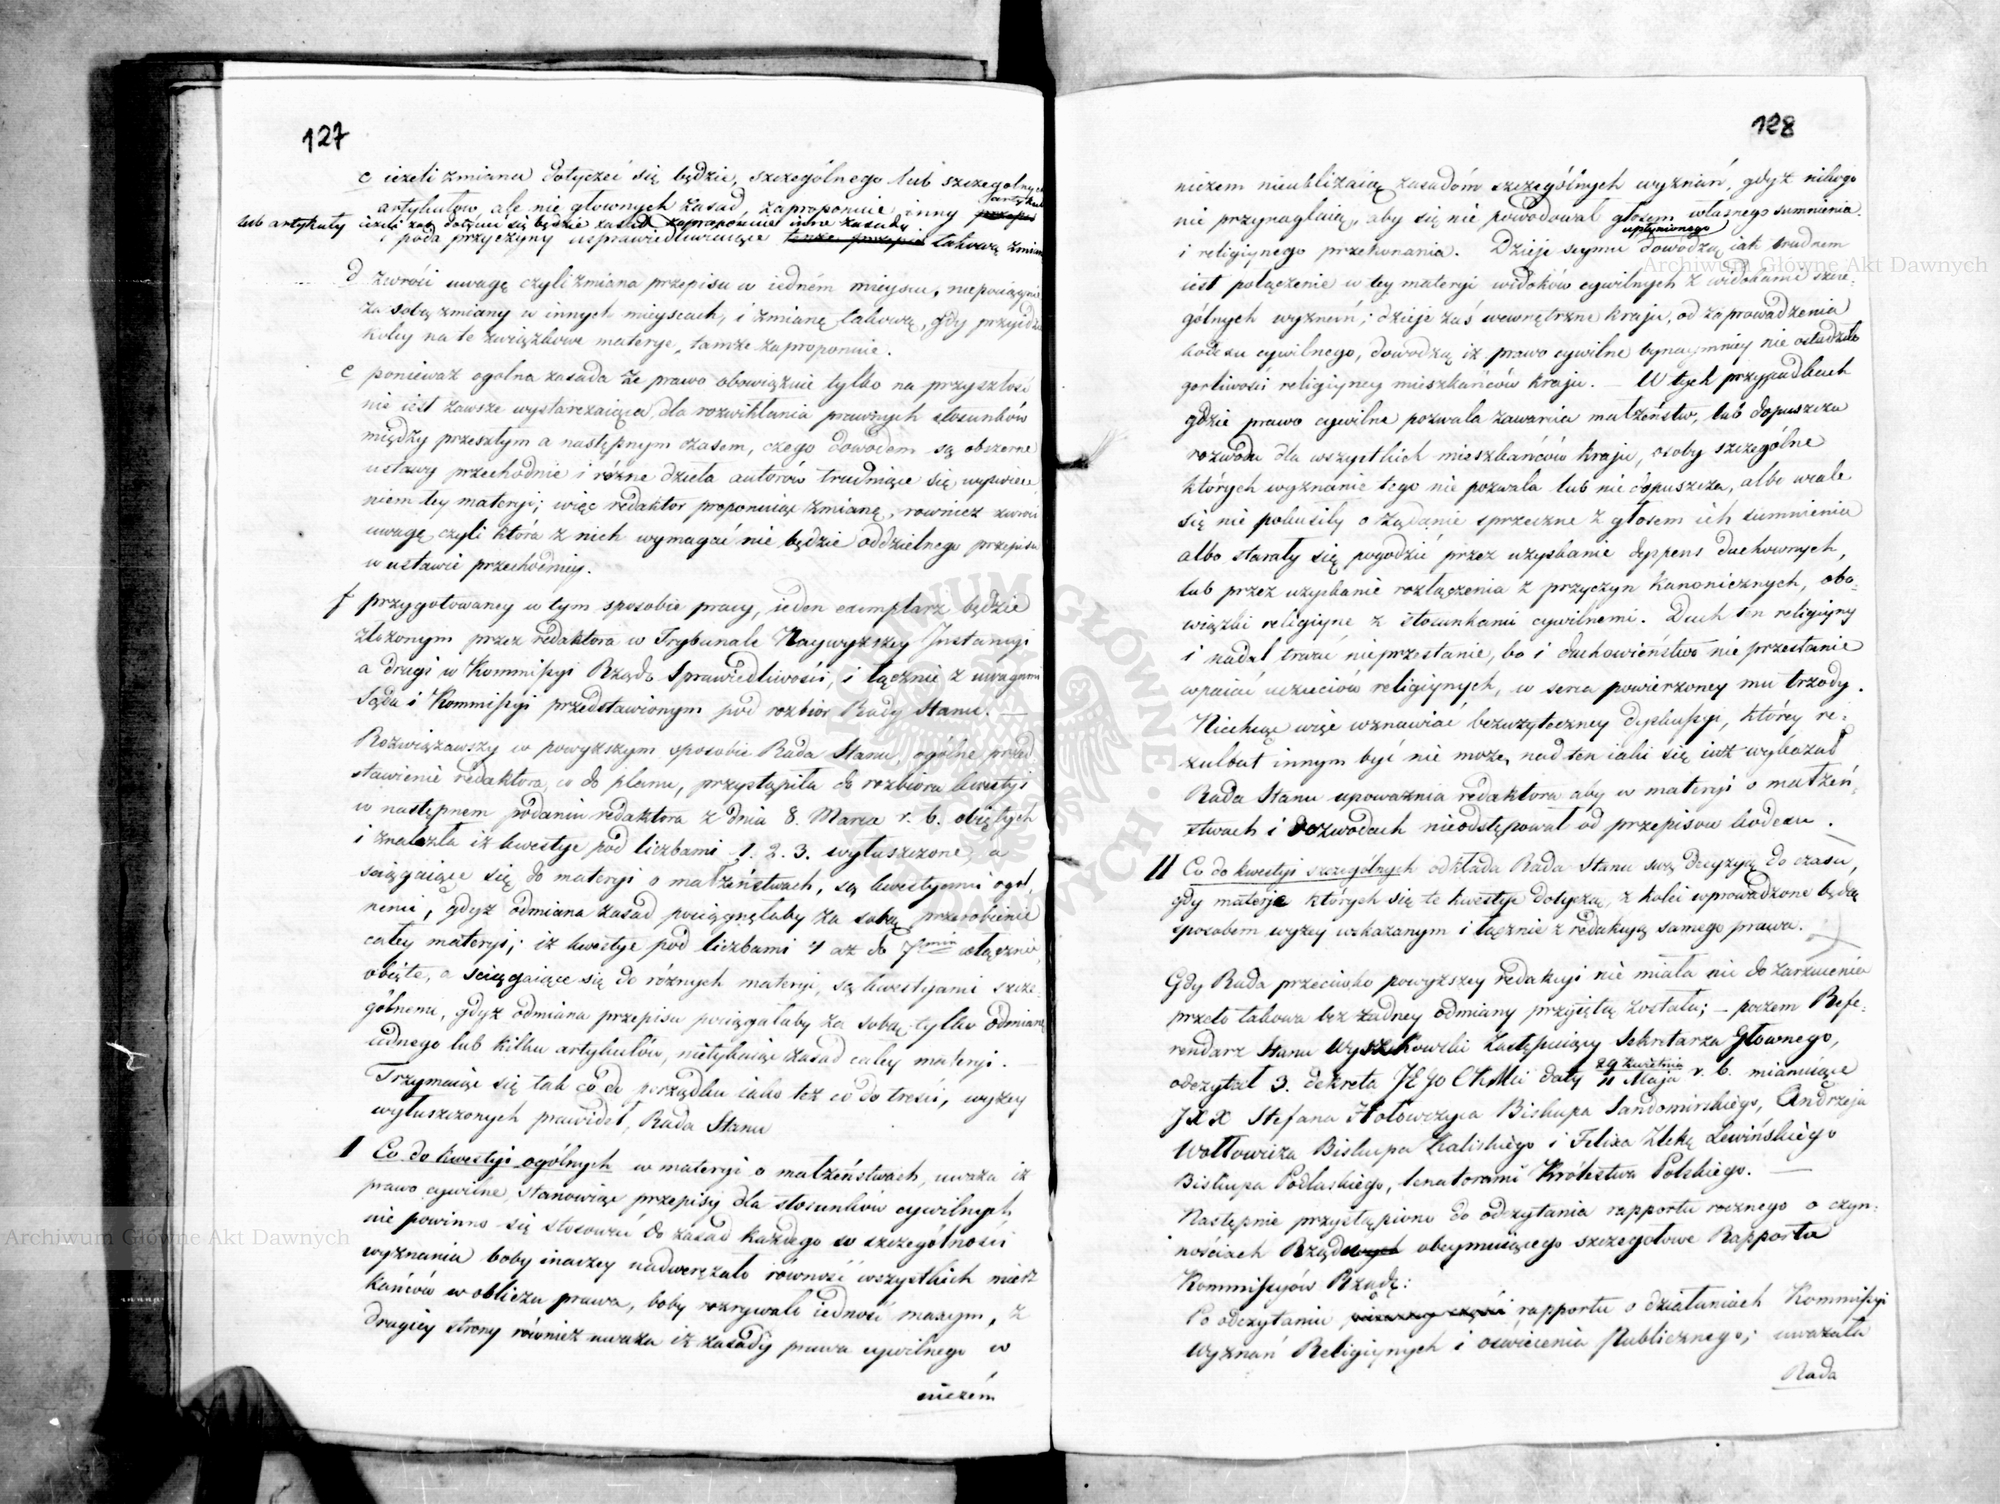 127
c ieżeli zmiana dotyczeć się będzie, szczególnego lub szczególnych
artykułów, ale nie głownych zasad, zaproponuie inny artykuł
lub artykuły ieżeli zaś dotyczeć się będzie zasad zaproponuie inne zasady
i poda przyczyny usprawiedliwiaiące takową zmianę
d zwróci uwagę czyli zmiana przepisu w iedném mieyscu, niepociągnie
za sobą zmiany w innych mieyscach, i zmianę takową, gdy przyidzie
koley na te związkowe materye, tamże zaproponuie.
e ponieważ ogólna zasada że prawo obowiązuie tylko na przyszłość
nie iest zawsze wystarczaiąca, dla rozwikłania prawnych stosunków
między przeszłym a następnym czasem, czego dowodem są obszerne
ustawy przechodnie i różne dzieła autorów trudniące się wyświece-
niem tey materyi; więc redaktor proponuiąc zmianę, rownież zwróci
uwagę czyli która z nich wymagać nie będzie oddzielnego przepisu
w ustawie przechodniey.
f przygotowaney w tym sposobie pracy, ieden exemplarz będzie
złożonym przez redaktora w Trybunale Naywyższey Instancyi
a drugi w Kommissyi Rządo: Sprawiedliwości, i łącznie z uwagami
Sądu i Kommissyi przedstawionym pod rozbiór Rady Stanu. —
Rozwiązawszy w powyższym sposobie Rada Stanu, ogólne przed-
stawienie redaktora co do planu, przystąpiła do rozbioru kwestyi
w następnem podaniu redaktora z dnia 8. Marca r. b. obiętych
i znalazła iż kwestye pod liczbami 1. 2. 3. wyłuszczone, a
ściągaiące się do materyi o małżeństwach, są kwestyami ogól-
nemi, gdyż odmiana zasad pociągnęłaby za sobą przerobienie
całey materyi; iż kwestye pod liczbami 4 aż do 7min włącznie
obięte, a ściągaiące się do różnych materyi, są kwestyami szcze-
gólnemi, gdyż odmiana przepisu pociągałaby za sobą tylko odmianę
iednego lub kilku artykułów, nietykaiąc zasad całey materyi. —
Trzymaiąc się tak co do porządku iako też co do treści, wyżey
wyłuszczonych prawideł, Rada Stanu
I Co do kwestyi ogólnych w materyi o małżeństwach, uważa iż
prawo cywilne, stanowiąc przepisy dla stosunków cywilnych
nie powinno się stosować do zasad każdego w szczególności
wyznania boby inaczey nadweręzało równość wszystkich miesz
kańców w obliczu prawa, boby rozrywało iedność massy, z
drugiey strony również uważa iż zasady prawa cywilnego w
niczém
128
niczem nieubliżaią zasadom szczególnych wyznań, gdyż nikogo
nie przynaglaią, aby się nie powodował głosem własnego sumnienia
i religiynego przekonania. Dzieje seymu upłynionego dowodzą iak trudnem
iest połączenie w tey materyi widoków cywilnych z widokami szcze-
gólnych wyznań; dzieje zaś wewnętrzne kraju, od zaprowadzenia
kodexu cywilnego, dowodzą iż prawo cywilne bynaymniey nie osłudziło
gorliwości religiyney mieszkańców kraju. — W tych przypadkach
gdzie prawo cywilne pozwala zawarcia małżeństw, lub dopuszcza
rozwodu dla wszystkich mieszkańców kraju, osoby szczególne
których wyznanie tego nie pozwala lub nie dopuszcza, albo wcale
się nie pokusiły o żądanie sprzeczne z głosem ich sumnienia
albo starały się pogodzić przez uzyskanie dyspens duchownych,
lub przez uzyskanie rozłączenia z przyczyn kanonicznych, obo-
wiązki religiyne z stosunkami cywilnemi. Duch ten religiyny
i nadal trwać nieprzestanie, bo i duchowieństwo nie przestanie
wpaiać uczuciów religiynych, w serca powierzoney mu trzody.
Niechcąc więc wznawiać bezużyteczney dyskussyi, którey re-
zultat innym być nie może, nad ten iaki się iuż wykazał
Rada Stanu upoważnia redaktora aby w materyi o małżeń-
stwach i rozwodach nieodstępował od przepisow kodexu.
II Co do kwestyi szczególnych odkłada Rada Stanu swą decyzyą do czasu,
gdy materje których się te kwestye dotyczą, z kolei wprowadzone będą
sposobem wyżey wskazanym i łącznie z redakcyą samego prawa.
Gdy Rada przeciwko powyższey redakcyi nie miała nic do zarzucenia
przeto takowa bez żadney odmiany przyiętą została; — poczem Refe-
rendarz Stanu Wyszkowski Zastępuiący Sekretarza Głownego,
odczytał 3. dekreta JEgo CKMci daty 29 Kwietnia / 11 Maja r. b. mianuiące
JXX Stefana Hołowczyca Biskupa Sandomirskiego, Andrzeja
Wołłowicza Biskupa Kaliskiego i Felixa Lewińskiego
Biskupa Podlaskiego, Senatorami Królestwa Polskiego. —
Następnie przystąpiono do odczytania rapportu rocznego o czyn-
nościach Rządowych obeymuiącego szczegołowe Rapporta
Kommissyów Rządo:
Po odczytaniu rapportu o działaniach Kommissyi
Wyznań Religiynych i oświecenia Publicznego; uważała
Rada
Archiwum Główne Akt Dawnych
Archiwum Główne Akt Dawnych
ARCHIWUM GŁÓWNE AKT DAWNYCH